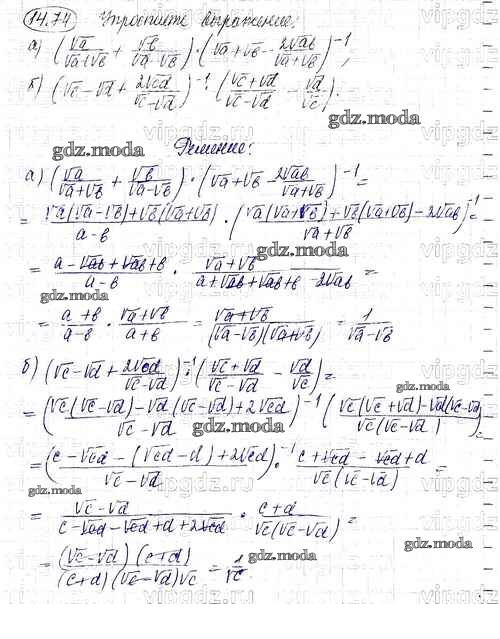 14.74 Упростите выражение:
а) (√a/(√a+√b) + √b/(√a-√b)) · (√a+√b - 2√ab/(√a+√b))⁻¹,
б) (√c-√d + 2√cd/(√c-√d))⁻¹ · ((√c+√d)/(√c-√d) - √d/√c).
gdz.moda
Решение:
gdz.moda
а) (√a/(√a+√b) + √b/(√a-√b)) · (√a+√b - 2√ab/(√a+√b))⁻¹ =
= (√a(√a-√b)+√b(√a+√b))/(a-b) · ((√a(√a+√b)+√b(√a+√b)-2√ab)/(√a+√b))⁻¹ =
= (a-√ab+√ab+b)/(a-b) · (√a+√b)/(a+√ab+√ab+b-2√ab) =
gdz.moda
= (a+b)/(a-b) · (√a+√b)/(a+b) = (√a+√b)/((√a-√b)(√a+√b)) = 1/(√a-√b)
б) (√c-√d + 2√cd/(√c-√d))⁻¹ · ((√c+√d)/(√c-√d) - √d/√c) =
gdz.moda
= ((√c(√c-√d)-√d(√c-√d)+2√cd)/(√c-√d))⁻¹ · ((√c(√c+√d)-√d(√c-√d))/(√c(√c-√d))) =
= ((c-√cd-(√cd-d)+2√cd)/(√c-√d))⁻¹ · (c+√cd-√cd+d)/(√c(√c-√d)) =
gdz.moda
gdz.moda
= (√c-√d)/(c-√cd-√cd+d+2√cd) · (c+d)/(√c(√c-√d)) =
= ((√c-√d)(c+d))/((c+d)(√c-√d)√c) = 1/√c.
gdz.moda